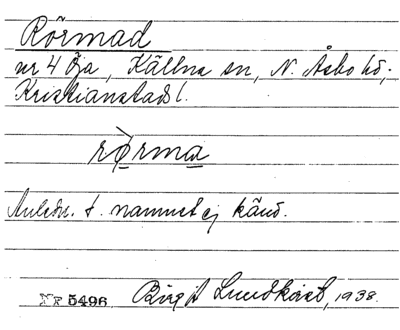 Rörmad
nr 4 Öja, Källna sn, N. Åsbo hd,
Kristianstads l.
rò̱rma̱
Anledn. t. namnet ej känd.
Nr 5496 Birgit Lundkvist, 1938.